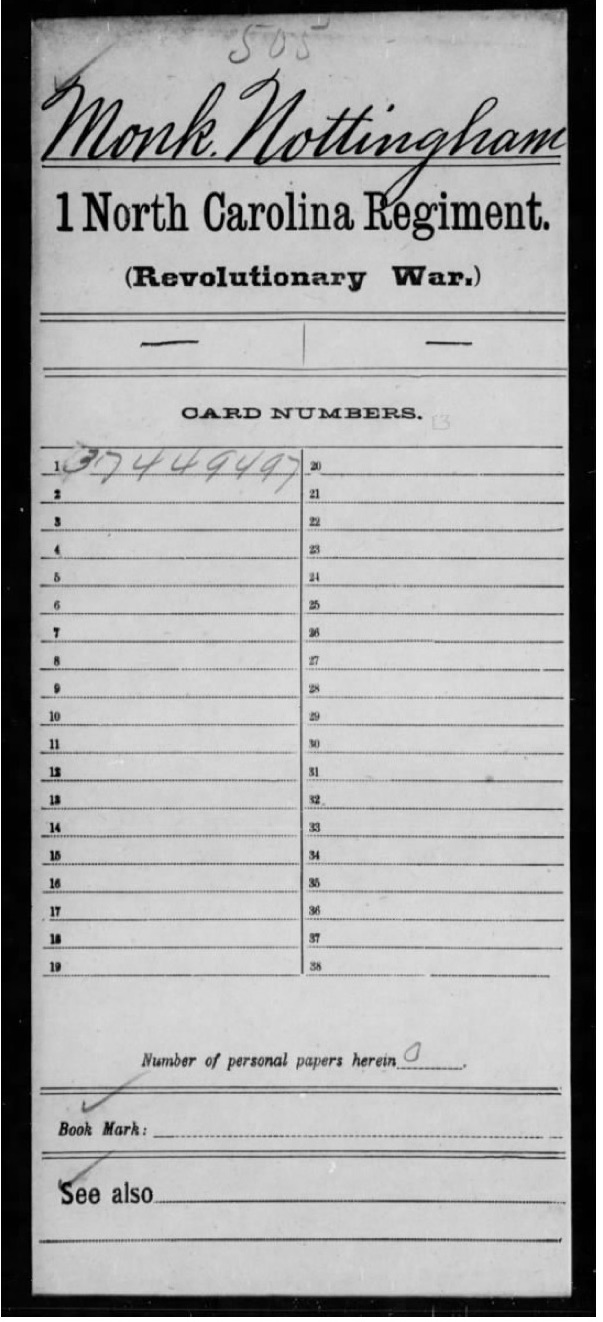 505
Monk, Nottingham
1 North Carolina Regiment.
(Revolutionary War.)
— | —
CARD NUMBERS.
1 37449497 20
2 21
3 22
4 23
5 24
6 25
7 26
8 27
9 28
10 29
11 30
12 31
13 32
14 33
15 34
16 35
17 36
18 37
19 38
Number of personal papers herein 0.
Book Mark:
See also